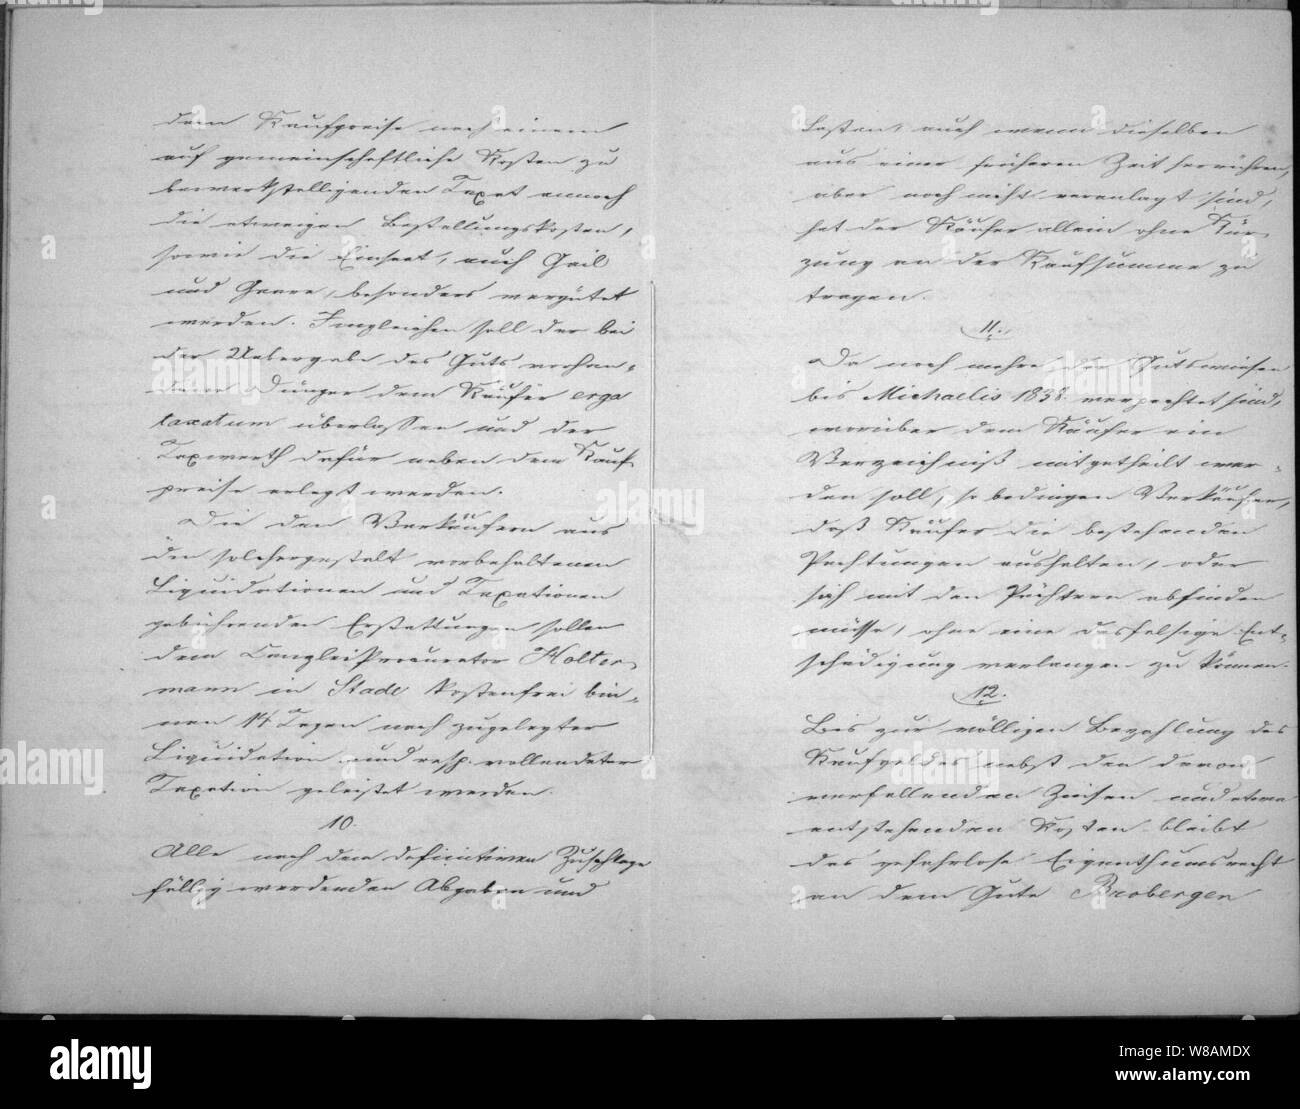 dem Kaufpreise nach einem
auf gemeinschaftliche Kosten zu
bewerkstelligenden Taxat annoch
die etwaigen Bestellungskosten,
sowie die Einsaat, auch Gail
und Gaare, besonders vergütet
werden. Imgleichen soll der bei
der Uebergabe des Guts vorhan-
dene Dünger dem Käufer erga
taxatum überlassen und der
Taxwerth dafür neben dem Kauf
preise erlegt werden.
Die den Verkäufern aus
den solchergestalt vorbehaltenen
Liquidationen und Taxationen
gebührenden Erstattungen sollen
dem Canzlei Procurator Holter
mann in Stade kostenfrei bin-
nen 14 Tagen nach zugelegter
Liquidation und resp. vollendeter
Taxation geleistet werden.
10.
Alle nach dem definitiven Zuschlage
fällig werdenden Abgaben und
Lasten, auch wenn dieselben
aus einer früheren Zeit herrühren,
aber noch nicht veranlagt sind,
hat der Käufer allein ohne Kür
zung an der Kaufsumme zu
tragen.
11.
Da noch mehre der Gutswiesen
bis Michaelis 1838 verpachtet sind,
worüber dem Käufer ein
Verzeichniß mitgetheilt wer-
den soll, so bedingen Verkäufer,
daß Käufer die bestehenden
Pachtungen aushalten, oder
sich mit den Pächtern abfinden
müsse, ohne eine desfalsige Ent-
schädigung verlangen zu können.
12.
Bis zur völligen Bezahlung des
Kaufgeldes nebst den davon
verfallenden Zinsen und etwa
entstehenden Kosten bleibt
das gefahrlose Eigenthumsrecht
an dem Gute Brobergen
alamy
Image ID: W8AMDX
www.alamy.com